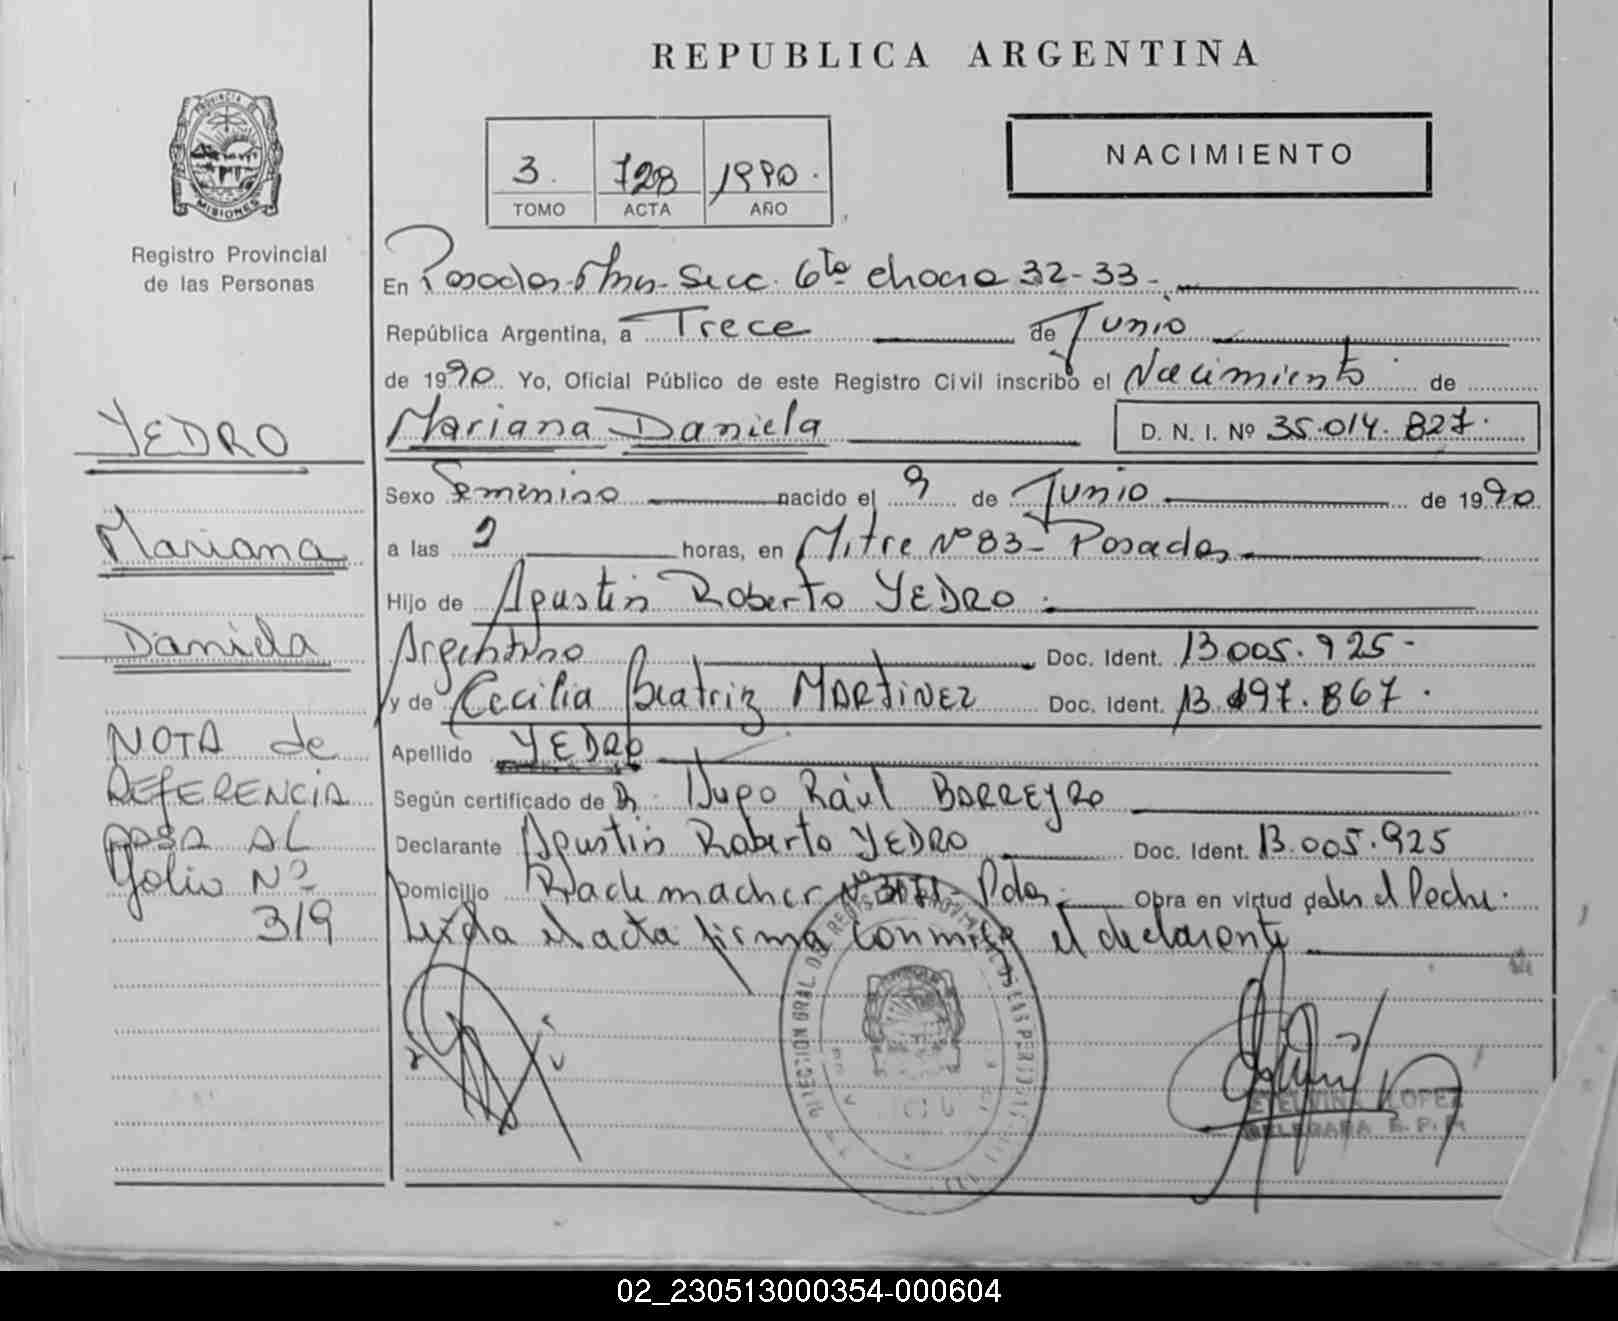 REPUBLICA ARGENTINA
PROVINCIA DE
MISIONES
Registro Provincial
de las Personas
3. 728 1990.
TOMO ACTA AÑO
NACIMIENTO
En Posadas - Mns - Secc. 6ta chacra 32-33-
República Argentina, a Trece de Junio
de 1990. Yo, Oficial Público de este Registro Civil inscribo el Nacimiento de
Mariana Daniela D. N. I. Nº 35.014.827.
Sexo Femenino nacido el 9 de Junio de 1990
a las 9 horas, en Mitre Nº 83 - Posadas
Hijo de Agustin Roberto YEDRO
Argentino Doc. Ident. 13.005.925-
y de Cecilia Beatriz MARTINEZ Doc. Ident. 13.197.867.
Apellido YEDRO
Según certificado de Dr. Hugo Raúl BARREYRO
Declarante Agustin Roberto YEDRO Doc. Ident. 13.005.925
Domicilio Rademacher Nº Pdas. Obra en virtud de ser el Padre.
Leída el acta firma conmigo el declarante
YEDRO
Mariana
Daniela
NOTA de
REFERENCIA
PASA AL
folio Nº
319
DIRECCION GRAL. DEL REGISTRO PROVINCIAL DE LAS PERSONAS
ETELVINA LOPEZ
DELEGADA R.P.P.
02_230513000354-000604